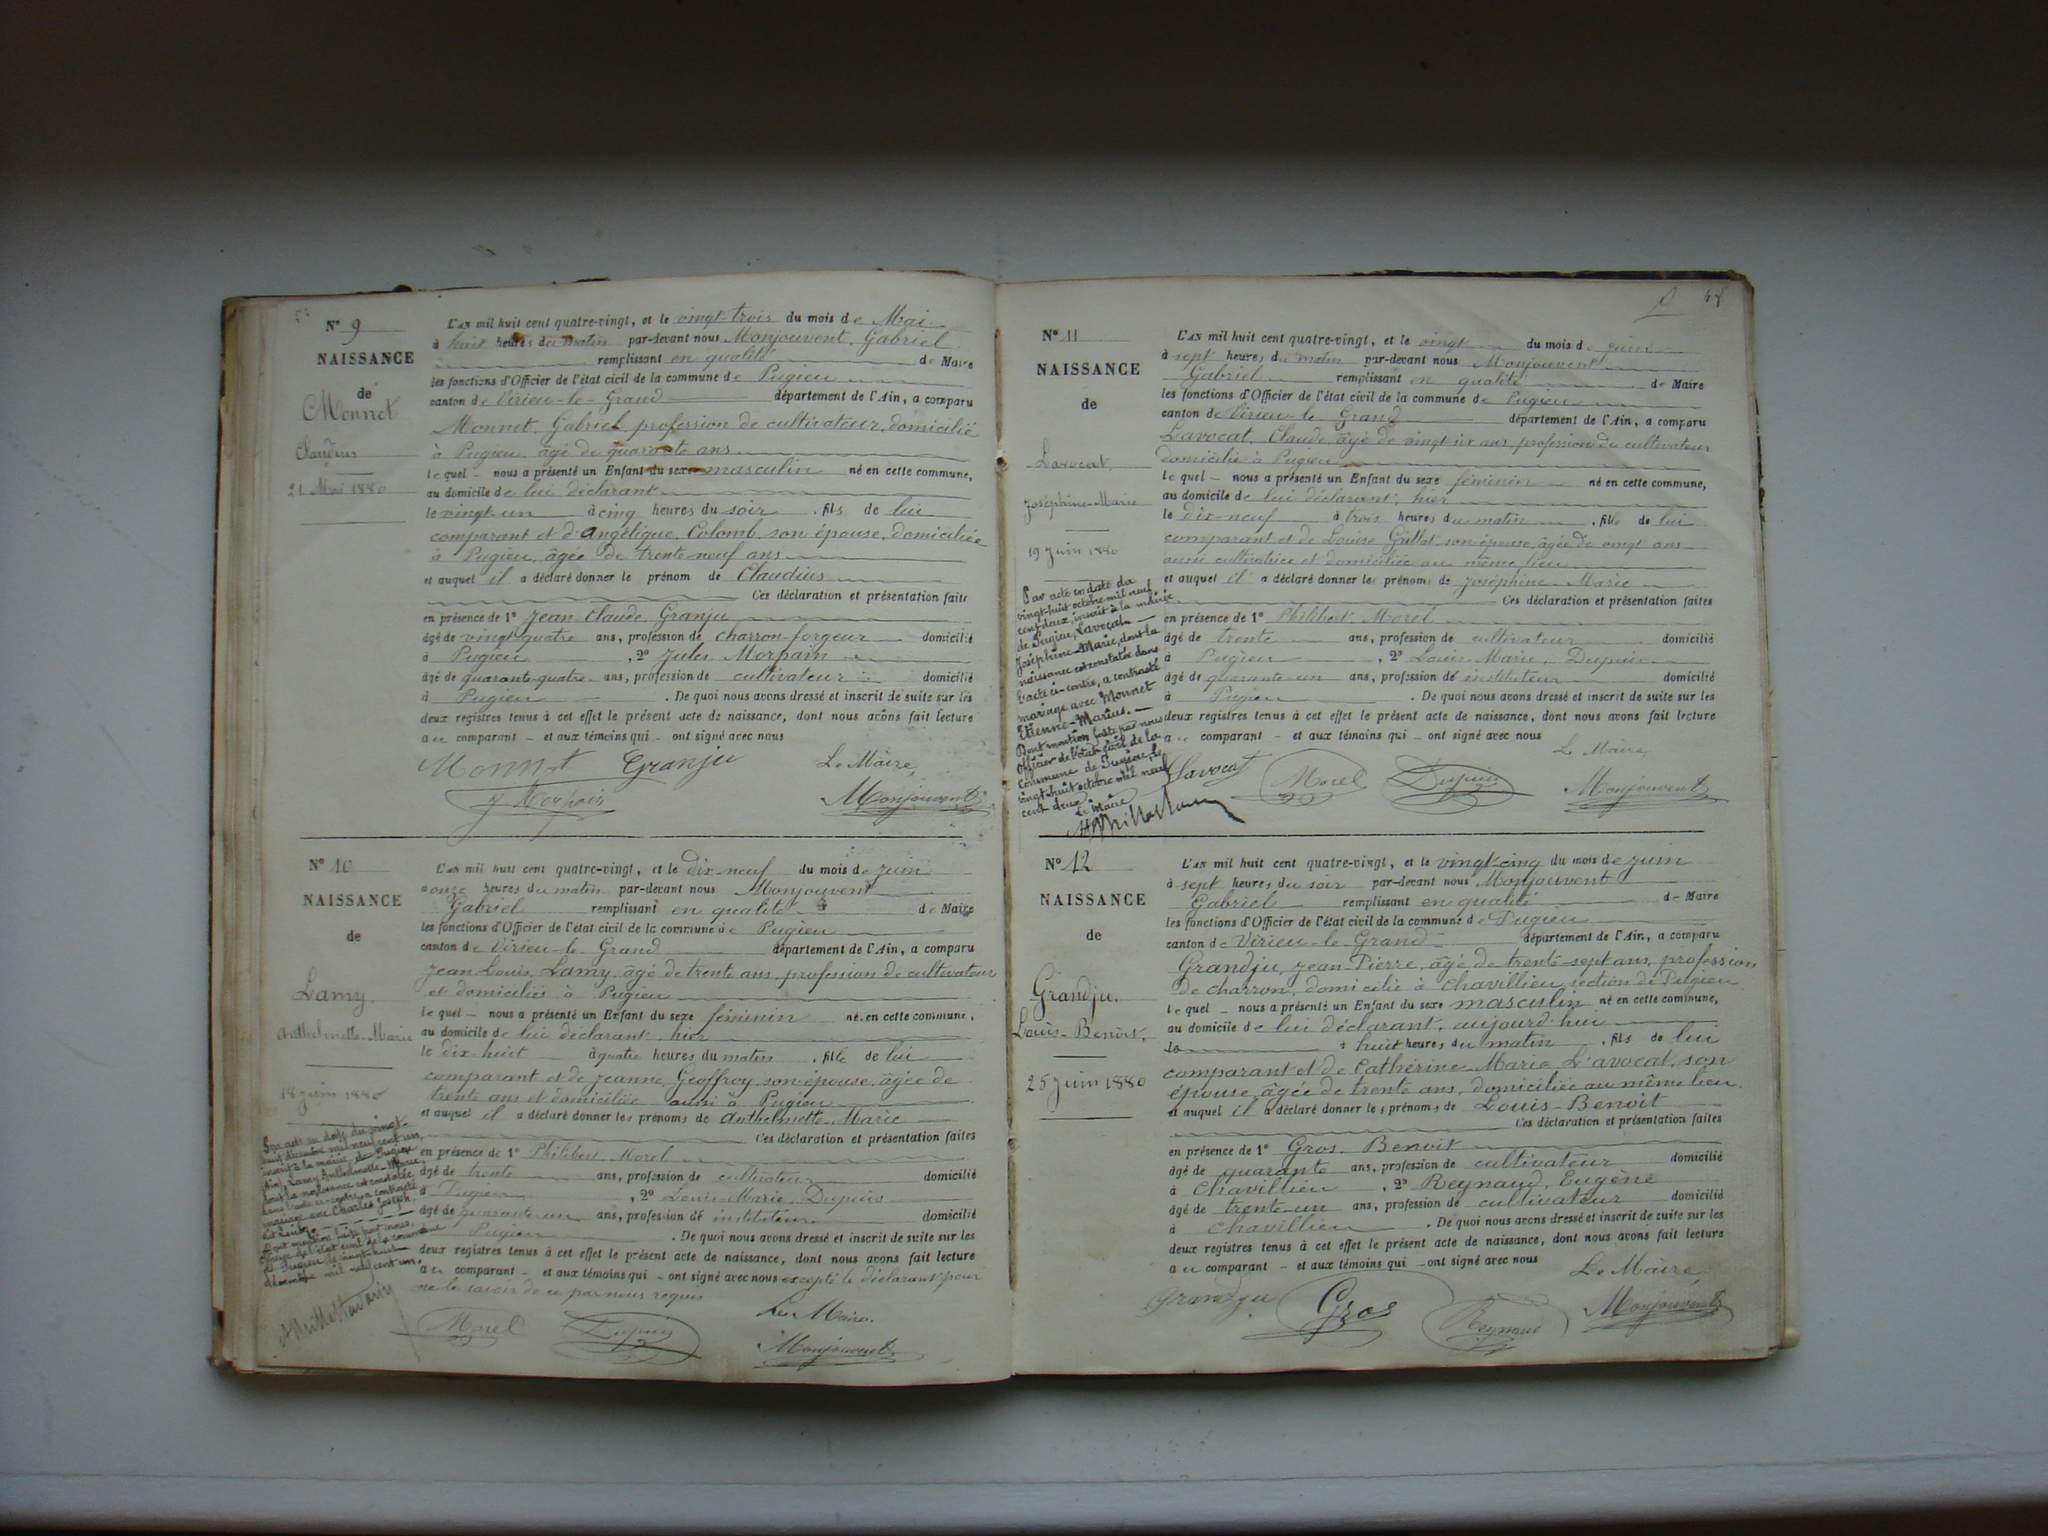 Nº 9
NAISSANCE
de
Monnet
Claudius
21 Mai 1880
L'AN mil huit cent quatre-vingt, et le vingt-trois du mois de Mai
à huit heures du matin par-devant nous Monjouvent, Gabriel
remplissant en qualité de Maire
les fonctions d'Officier de l'état civil de la commune de Pugieu
canton de Virieu-le-Grand département de l'Ain, a comparu
Monnet, Gabriel, profession de cultivateur, domicilié
à Pugieu, âgé de quarante ans
lequel nous a présenté un Enfant du sexe masculin né en cette commune,
au domicile de lui déclarant
le vingt-un à cinq heures du soir, fils de lui
comparant et d'Angélique Colomb, son épouse, domiciliée
à Pugieu, âgée de trente-neuf ans
et auquel il a déclaré donner le prénom de Claudius
Ces déclaration et présentation faite
en présence de 1º Jean Claude Granju
âgé de vingt-quatre ans, profession de charron-forgeur domicilié
à Pugieu, 2º Jules Morpain
âgé de quarante-quatre ans, profession de cultivateur domicilié
à Pugieu. De quoi nous avons dressé et inscrit de suite sur les
deux registres tenus à cet effet le présent acte de naissance, dont nous avons fait lecture
au comparant et aux témoins qui ont signé avec nous
Monnet Granju Le Maire,
J Morpain Monjouvent
Nº 10
NAISSANCE
de
Lamy,
Anthelmette-Marie
18 Juin 1880
Par acte en date du vingt-
huit décembre mil neuf cent un,
inscrit à la mairie de Pugieu
(Ain), Lamy Anthelmette-Marie
dont la naissance est constatée
dans l'acte ci-contre, a contracté
mariage avec Charles Joseph
Dont mention faite par nous,
officier de l'état civil de la commune
de Pugieu le vingt-huit
décembre mil neuf cent un.
L'AN mil huit cent quatre-vingt, et le dix-neuf du mois de juin
à onze heures du matin par-devant nous Monjouvent
Gabriel remplissant en qualité de Maire
les fonctions d'Officier de l'état civil de la commune de Pugieu
canton de Virieu-le-Grand département de l'Ain, a comparu
Jean Louis Lamy, âgé de trente ans, profession de cultivateur
et domicilié à Pugieu
lequel nous a présenté un Enfant du sexe féminin né en cette commune,
au domicile de lui déclarant, hier
le dix-huit à quatre heures du matin, fille de lui
comparant et de Jeanne Geoffroy son épouse, âgée de
trente ans et domiciliée aussi à Pugieu
et auquel il a déclaré donner les prénoms de Anthelmette-Marie
Ces déclaration et présentation faites
en présence de 1º Philibert Morel
âgé de trente ans, profession de cultivateur domicilié
à Pugieu, 2º Louis-Marie Dupuis
âgé de quarante-un ans, profession de instituteur domicilié
à Pugieu. De quoi nous avons dressé et inscrit de suite sur les
deux registres tenus à cet effet le présent acte de naissance, dont nous avons fait lecture
au comparant et aux témoins qui ont signé avec nous excepté le déclarant pour
ne le savoir de ce par nous requis
Le Maire.
Morel Dupuis Monjouvent
48
Nº 11
NAISSANCE
de
Lavocat,
Joséphine-Marie
19 Juin 1880
Par acte en date du
vingt-huit octobre mil neuf
cent deux, inscrit à la mairie
de Pugieu, Lavocat
Joséphine-Marie, dont la
naissance est constatée dans
l'acte ci-contre, a contracté
mariage avec Monnet
Etienne-Marius.
Dont mention faite par nous
Officier de l'état civil de la
commune de Pugieu, le
vingt-huit octobre mil neuf
cent deux
Le Maire
L'AN mil huit cent quatre-vingt, et le vingt du mois de juin
à sept heures du matin par-devant nous Monjouvent
Gabriel remplissant en qualité de Maire
les fonctions d'Officier de l'état civil de la commune de Pugieu
canton de Virieu-le-Grand département de l'Ain, a comparu
Lavocat, Claude, âgé de vingt-six ans, profession de cultivateur
domicilié à Pugieu
lequel nous a présenté un Enfant du sexe féminin né en cette commune,
au domicile de lui déclarant, hier
le dix-neuf à trois heures du matin, fille de lui
comparant et de Louise Grillet son épouse, âgée de vingt ans
aussi cultivatrice et domiciliée au même lieu
et auquel il a déclaré donner les prénoms de Joséphine-Marie
Ces déclaration et présentation faites
en présence de 1º Philibert Morel
âgé de trente ans, profession de cultivateur domicilié
à Pugieu, 2º Louis-Marie Dupuis
âgé de quarante-un ans, profession de instituteur domicilié
à Pugieu. De quoi nous avons dressé et inscrit de suite sur les
deux registres tenus à cet effet le présent acte de naissance, dont nous avons fait lecture
au comparant et aux témoins qui ont signé avec nous
Le Maire,
Lavocat Morel Dupuis Monjouvent
Nº 12
NAISSANCE
de
Grandju.
Louis-Benoit.
25 Juin 1880
L'AN mil huit cent quatre-vingt, et le vingt-cinq du mois de juin
à sept heures du soir par-devant nous Monjouvent
Gabriel remplissant en qualité de Maire
les fonctions d'Officier de l'état civil de la commune de Pugieu
canton de Virieu-le-Grand département de l'Ain, a comparu
Grandju, Jean-Pierre, âgé de trente-sept ans, profession
de charron, domicilié à Chavillieu, section de Pugieu
lequel nous a présenté un Enfant du sexe masculin né en cette commune,
au domicile de lui déclarant, aujourd'hui
à huit heures du matin, fils de lui
comparant et de Catherine-Marie L'avocat, son
épouse, âgée de trente ans, domiciliée au même lieu.
et auquel il a déclaré donner les prénoms de Louis-Benoit
Ces déclaration et présentation faites
en présence de 1º Gros, Benoit
âgé de quarante ans, profession de cultivateur domicilié
à Chavillieu, 2º Reynaud, Eugène
âgé de trente-un ans, profession de cultivateur domicilié
à Chavillieu. De quoi nous avons dressé et inscrit de suite sur les
deux registres tenus à cet effet le présent acte de naissance, dont nous avons fait lecture
au comparant et aux témoins qui ont signé avec nous
Le Maire,
Grandju Gros Reynaud Monjouvent